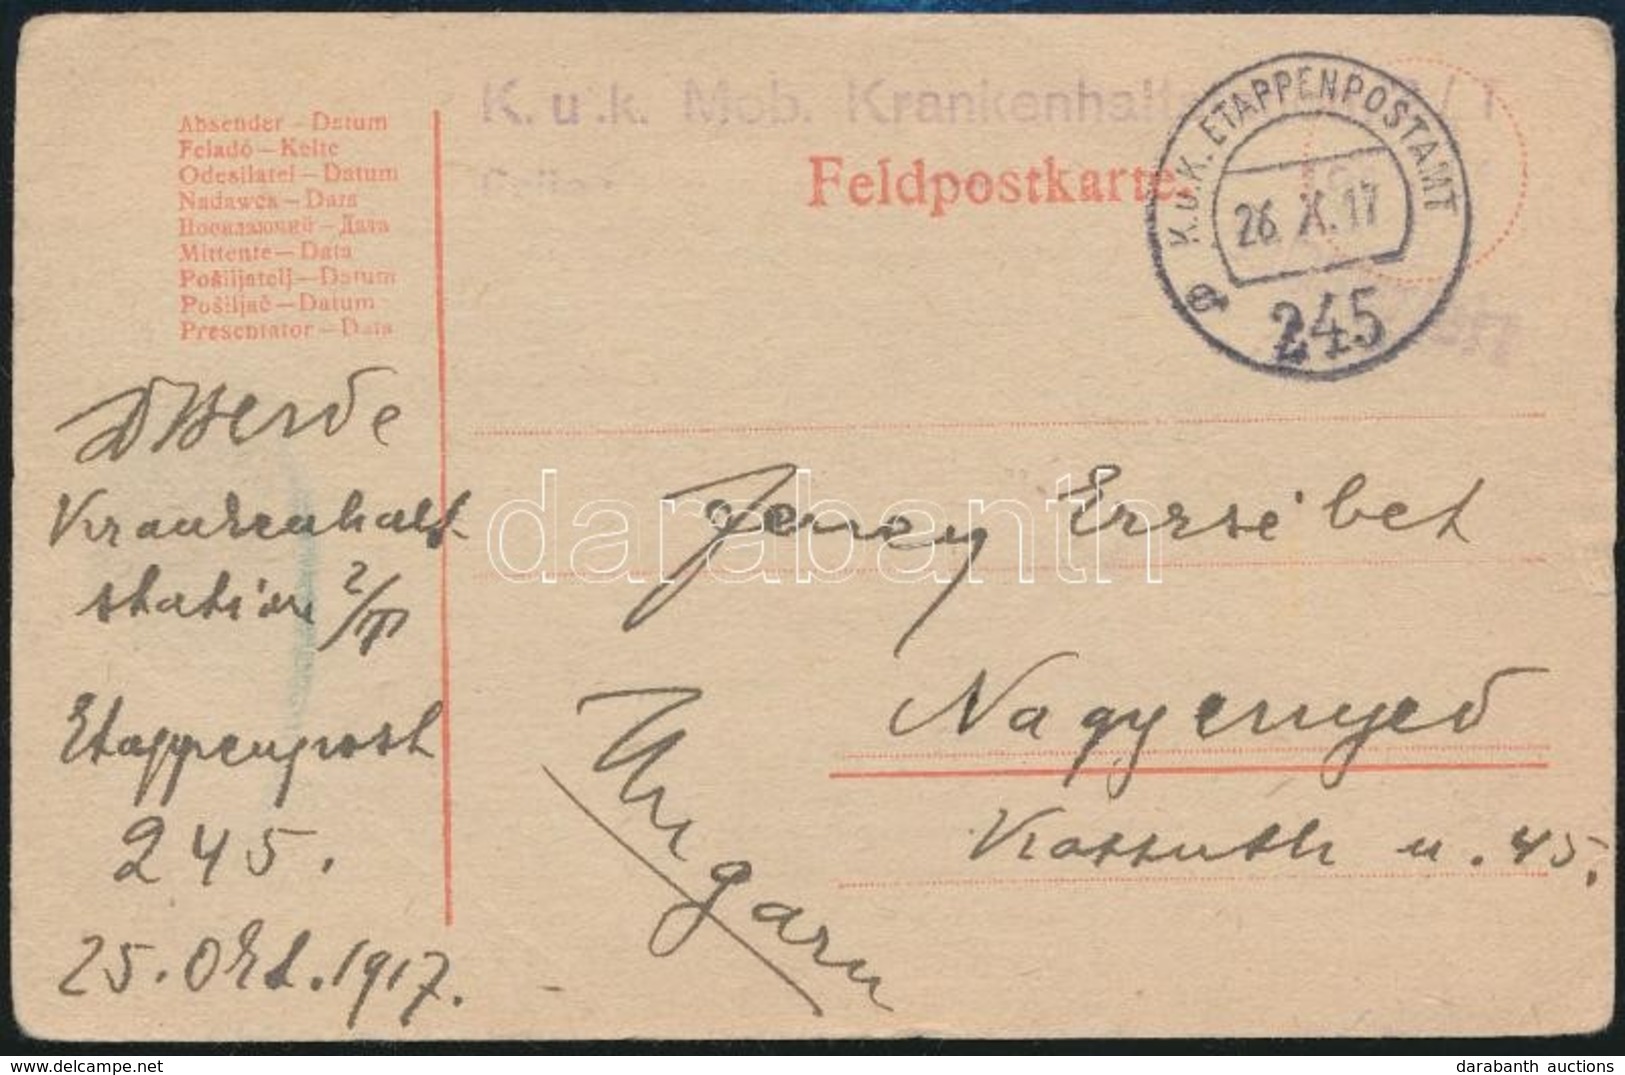 K.u.k. Mob. Krankenhalt
Feldpostkarte.
K.u.K. ETAPPENPOSTAMT
26. X. 17
245
Absender – Datum
Feladó – Kelte
Odesílatel – Datum
Nadawca – Data
Посилаючий – Дата
Mittente – Data
Pošiljatelj – Datum
Pošiljač – Datum
Presentator – Data
Krankenhalt
station 2/T
Etappenpost
245.
25. Okt. 1917.
Jeney Erzsébet
Nagyenyed
Kossuth u. 45.
Ungarn
darabanth
darabanth auctions